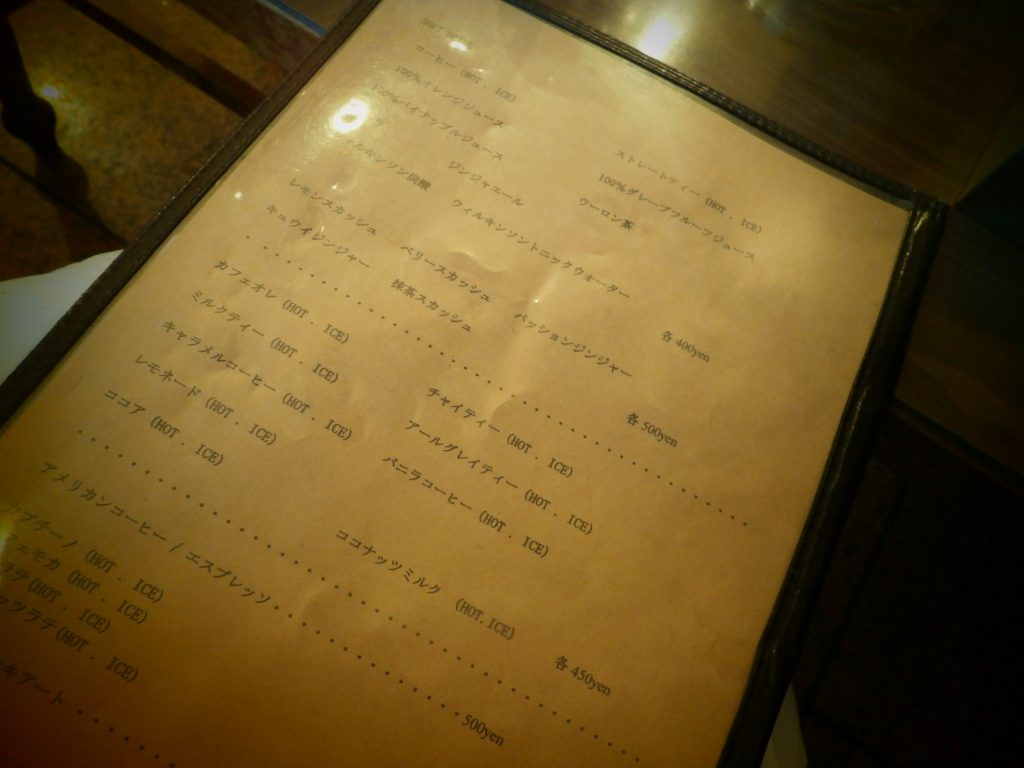 SOFT
コーヒー (HOT . ICE) ストレートティー (HOT . ICE)
100%オレンジジュース 100%グレープフルーツジュース
100%パイナップルジュース ウーロン茶
ジンジャエール
ウィルキンソン炭酸 ウィルキンソントニックウォーター
各400yen
レモンスカッシュ ベリースカッシュ パッションジンジャー
キュウイジンジャー 抹茶スカッシュ
各500yen
カフェオレ (HOT . ICE) チャイティー (HOT . ICE)
ミルクティー (HOT . ICE) アールグレイティー (HOT . ICE)
キャラメルコーヒー (HOT . ICE) バニラコーヒー (HOT . ICE)
レモネード (HOT . ICE)
ココア (HOT . ICE) ココナッツミルク (HOT. ICE)
各450yen
アメリカンコーヒー / エスプレッソ・・・・・・・・・・・・・・・500yen
カプチーノ (HOT . ICE)
(HOT . ICE)
(HOT . ICE)
(HOT . ICE)